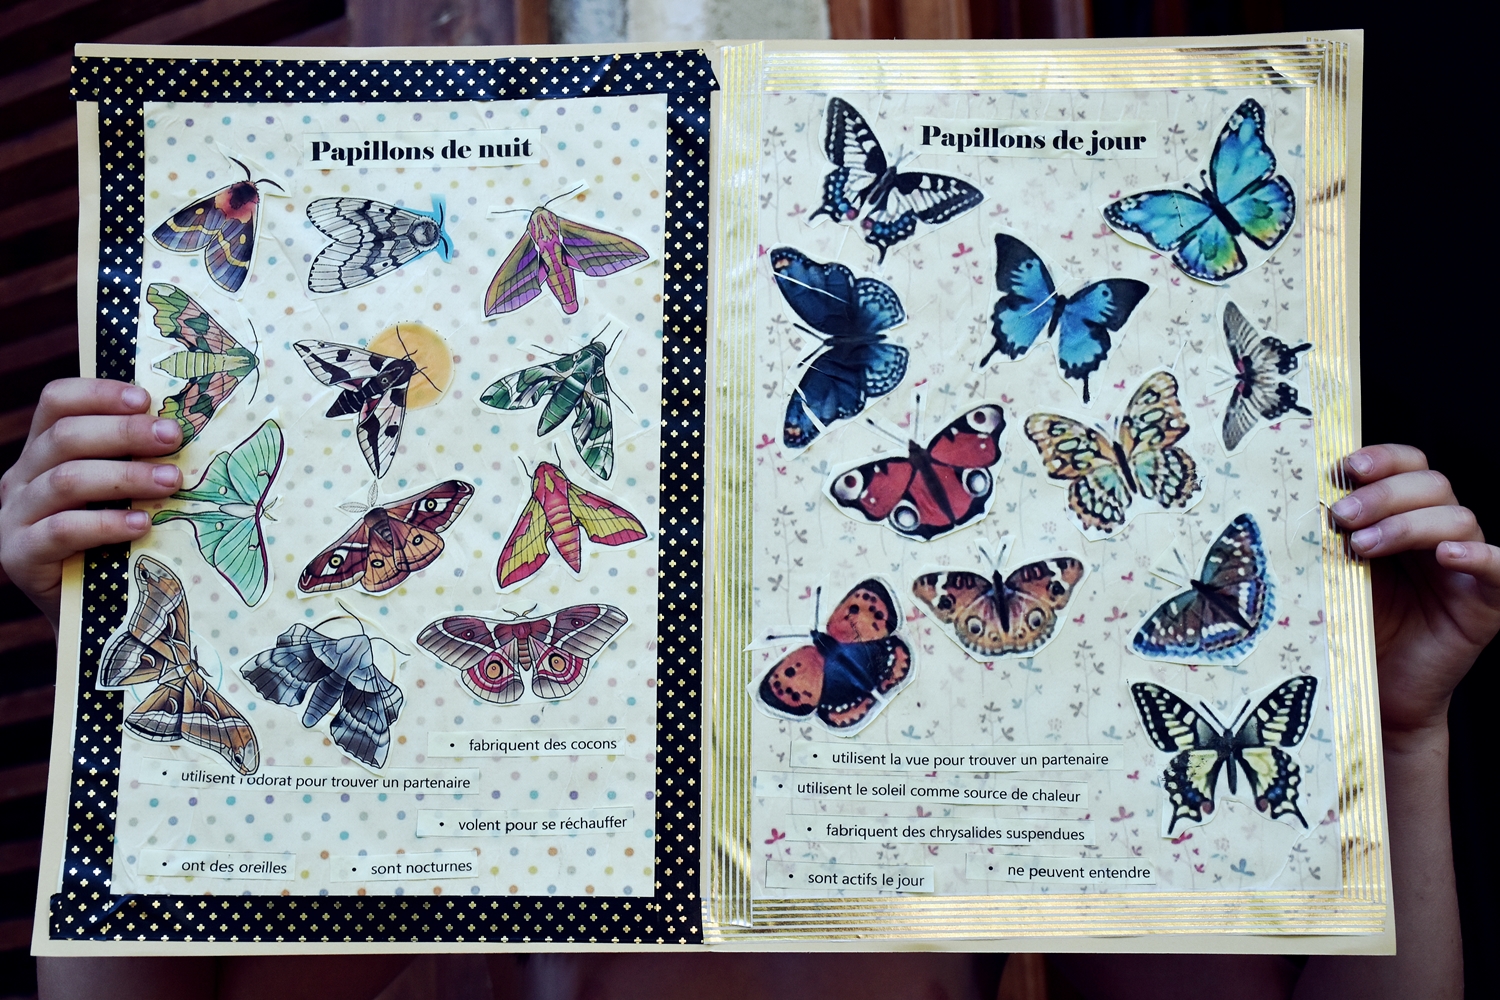 Papillons de nuit
• fabriquent des cocons
• utilisent l'odorat pour trouver un partenaire
• volent pour se réchauffer
• ont des oreilles
• sont nocturnes
Papillons de jour
• utilisent la vue pour trouver un partenaire
• utilisent le soleil comme source de chaleur
• fabriquent des chrysalides suspendues
• ne peuvent entendre
• sont actifs le jour